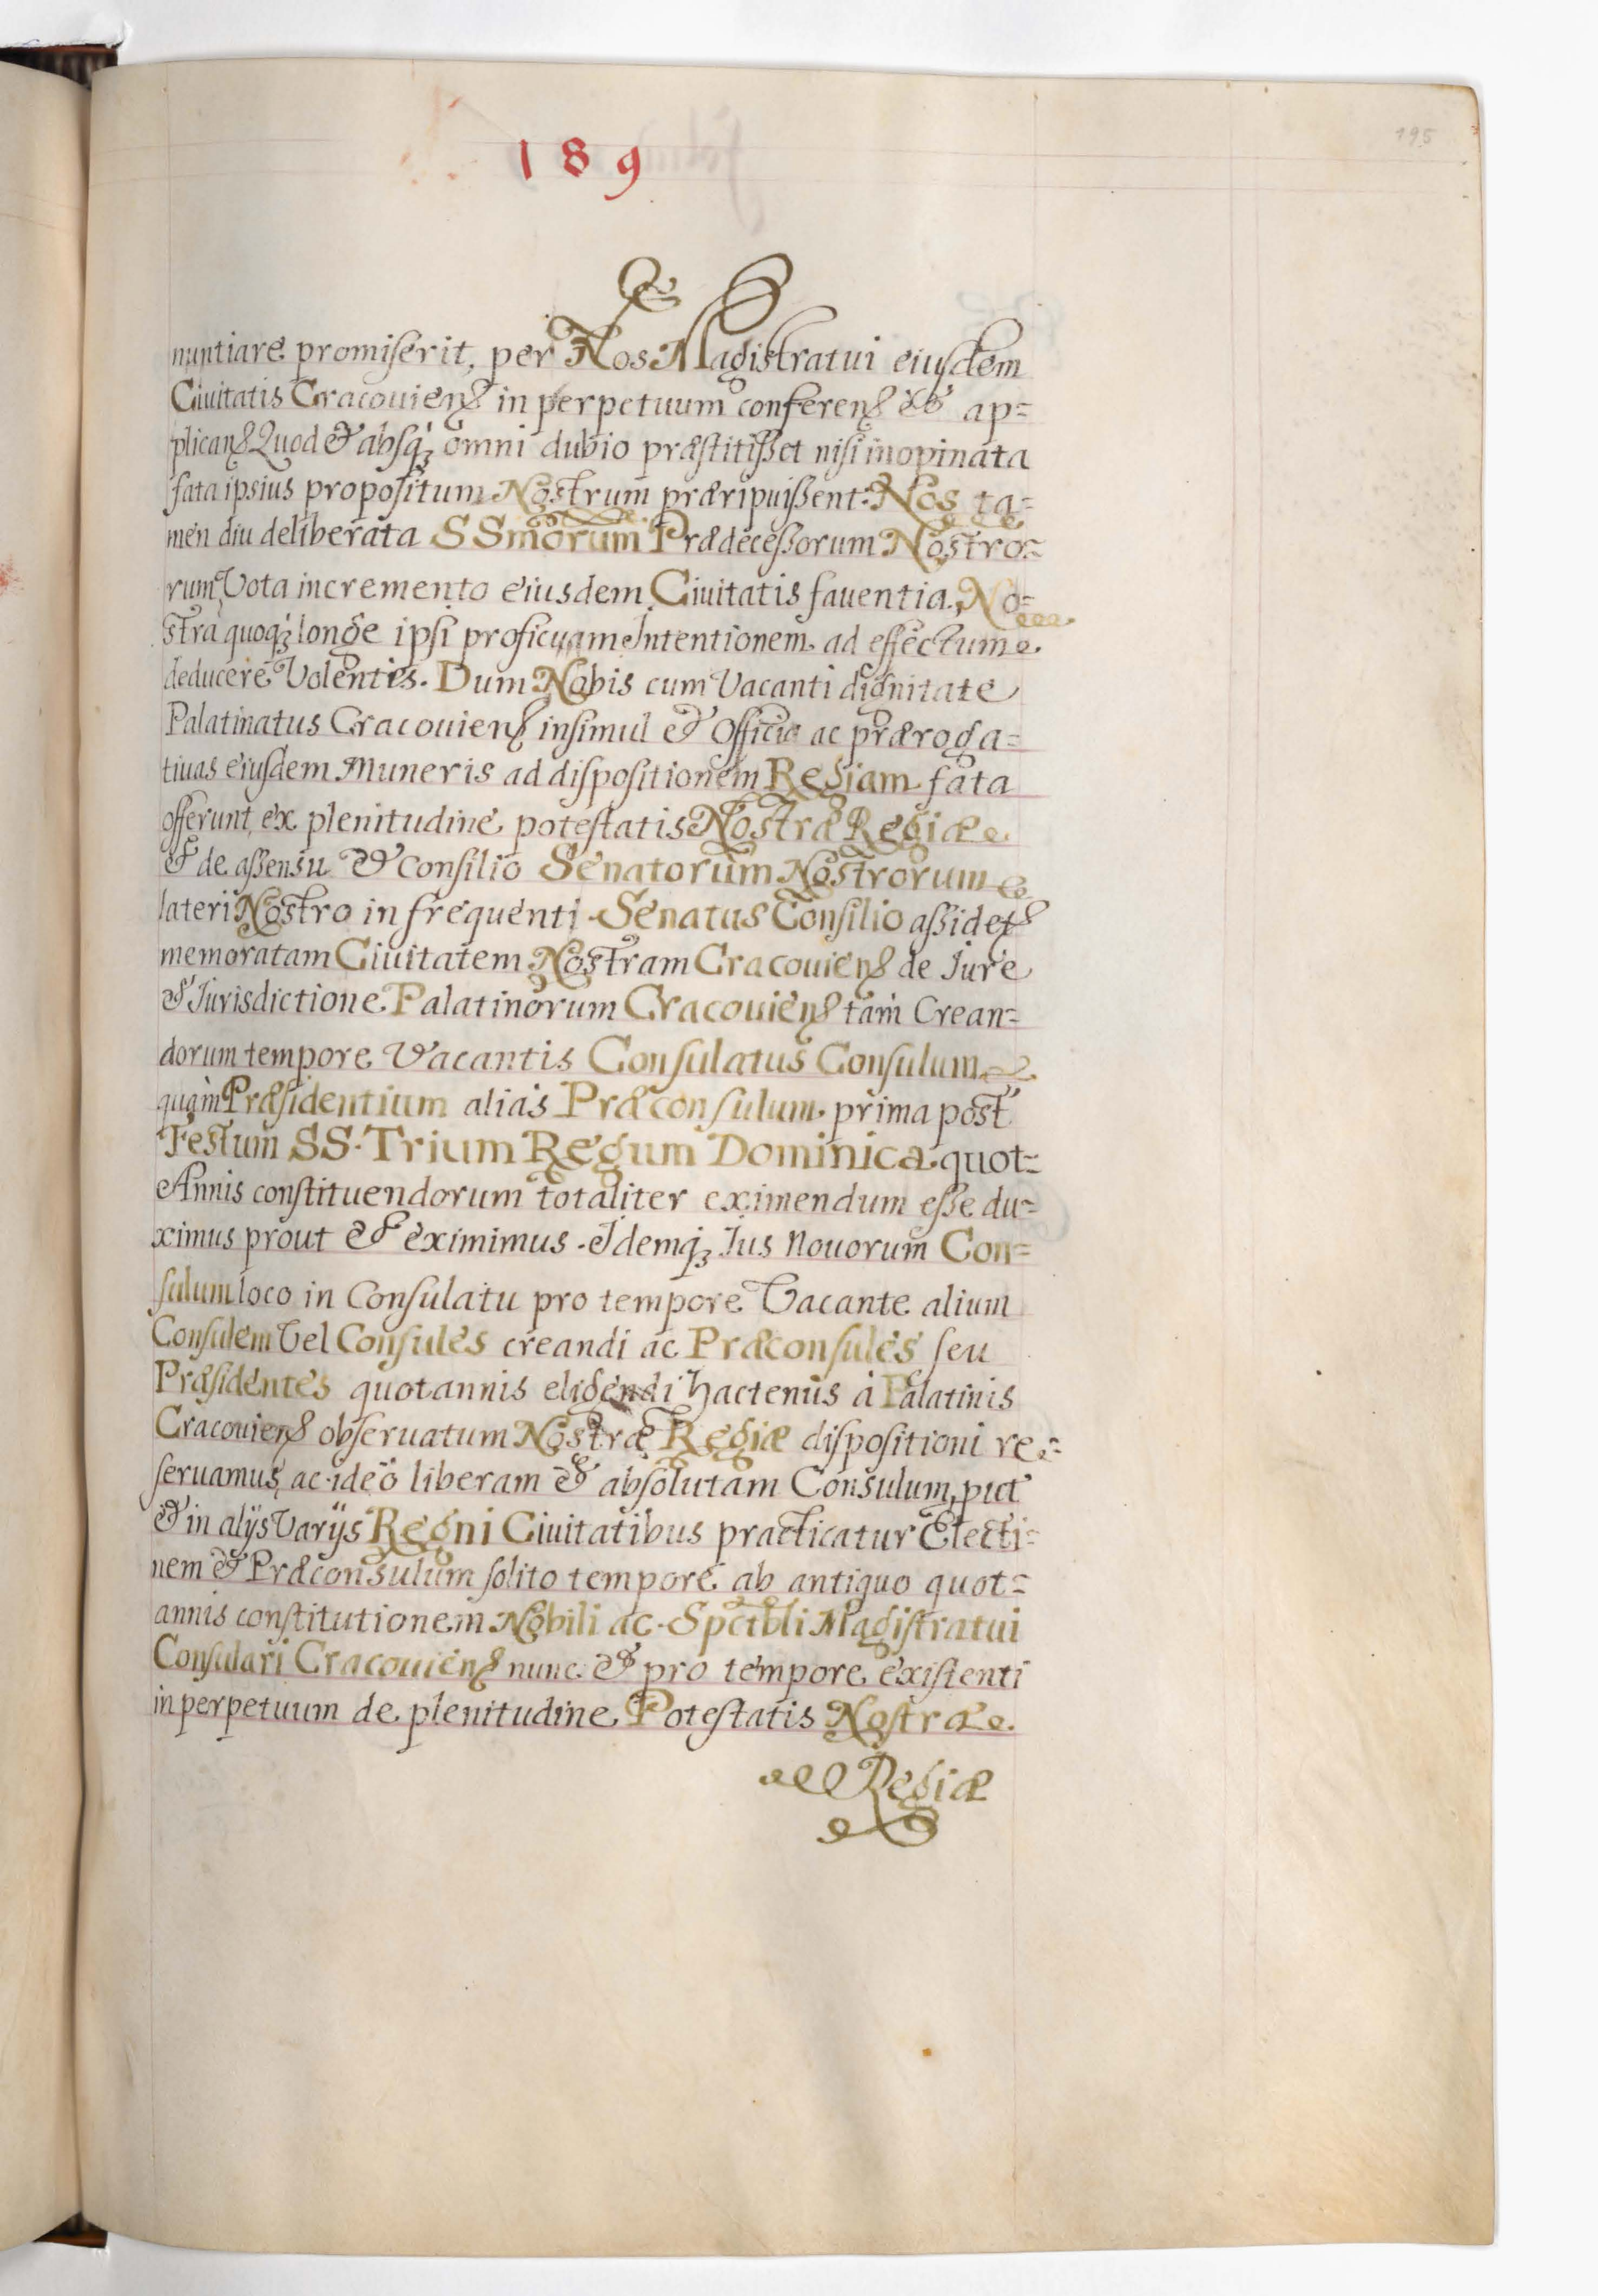 195
189
nuntiare promiserit, per Nos Magistratui eiusdem
Ciuitatis Cracouiens in perpetuum conferens & ap=
plicans Quod & absq; omni dubio præstitisset nisi inopinata
fata ipsius propositum Nostrum præripuissent: Nos ta=
men diu deliberata SSmorum Prædecessorum Nostro=
rum Vota incremento eiusdem Ciuitatis fauentia, No=
stra quoq; longe ipsi proficuam Intentionem ad effectum
deducere Volentes. Dum Nobis cum Vacanti dignitate
Palatinatus Cracouiens insimul & Officia ac præroga=
tiuas eiusdem Muneris ad dispositionem Regiam fata
offerunt, ex plenitudine potestatis Nostræ Regiæ
& de assensu & Consilio Senatorum Nostrorum
lateri Nostro in frequenti Senatus Consilio assidens
memoratam Ciuitatem Nostram Cracouiens de Jure
& Jurisdictione Palatinorum Cracouiens tam Crean=
dorum tempore Vacantis Consulatus Consulum
quàm Præsidentium alias Præconsulum prima post
Festum SS. Trium Regum Dominica quot=
Annis constituendorum totaliter eximendum esse du=
ximus prout & eximimus. Idemq; Jus Nouorum Con=
sulum loco in Consulatu pro tempore Vacante alium
Consulem Vel Consules creandi ac Præconsules seu
Præsidentes quotannis eligendi hactenus à Palatinis
Cracouiens obseruatum Nostræ Regiæ dispositioni re=
seruamus, ac ideò liberam & absolutam Consulum, put
& in alijs Varijs Regni Ciuitatibus practicatur Electi=
nem & Præconsulum solito tempore ab antiquo quot=
annis constitutionem Nobili ac Spctbli Magistratui
Consulari Cracouiens nunc & pro tempore existenti
in perpetuum de plenitudine Potestatis Nostræ
Regiæ